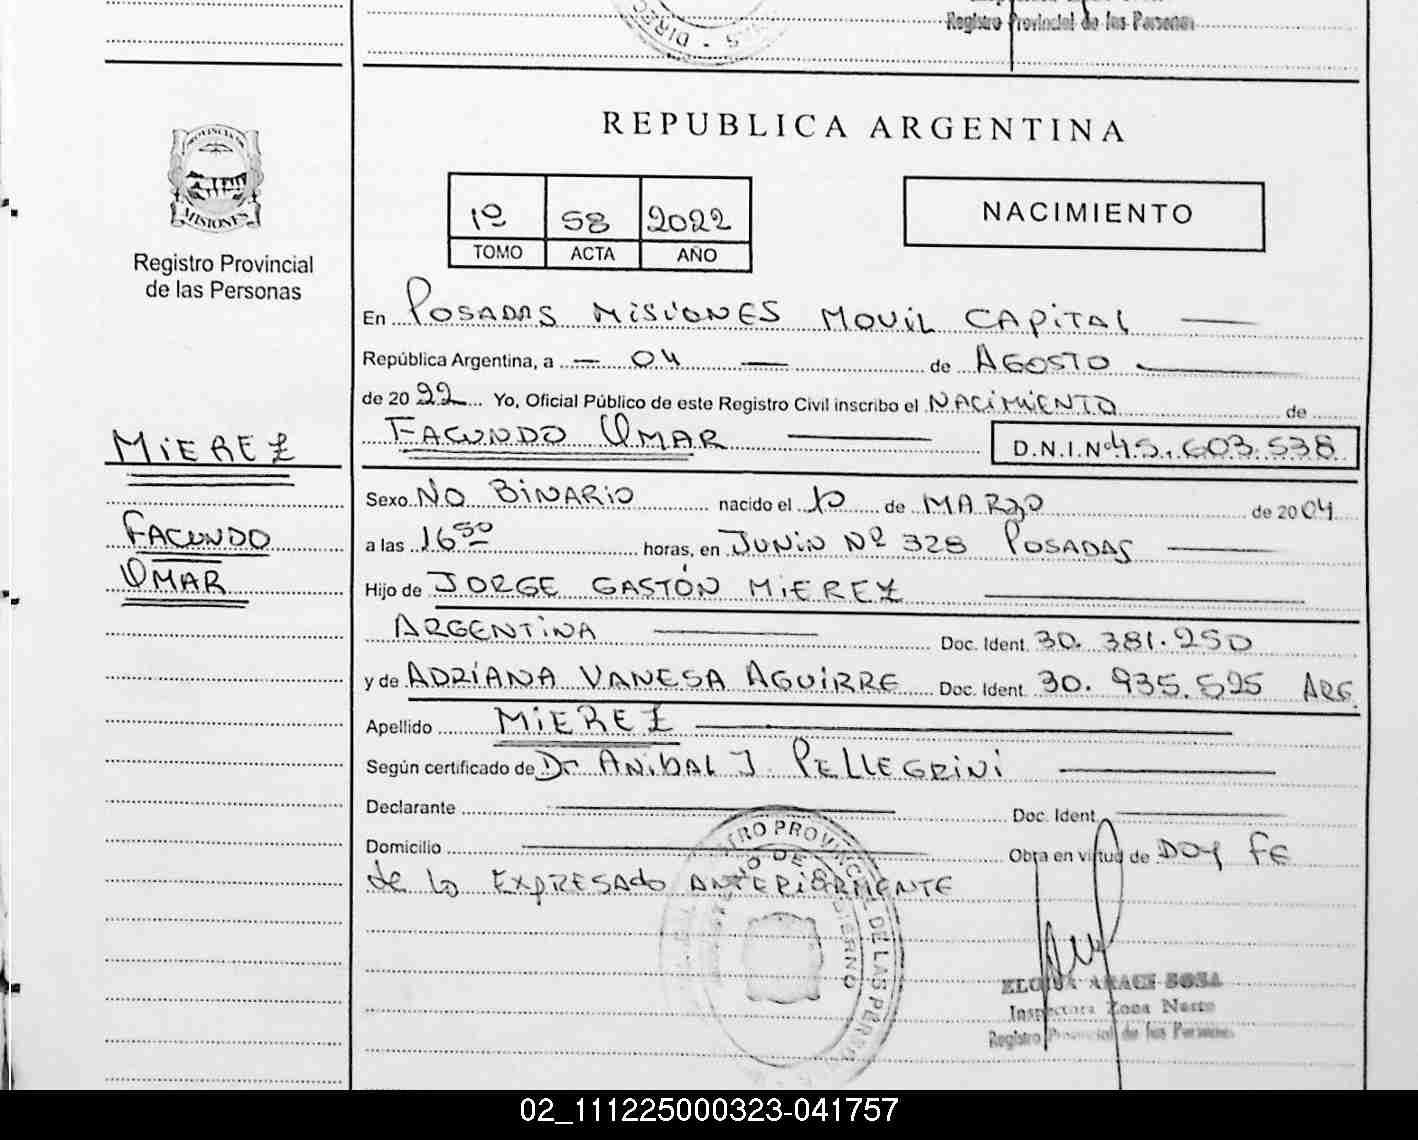 Registro Provincial de las Personas
PROVINCIA DE
MISIONES
Registro Provincial
de las Personas
MIEREZ
FACUNDO
OMAR
REPUBLICA ARGENTINA
1º 58 2022
TOMO ACTA AÑO
NACIMIENTO
En POSADAS MISIONES MOVIL CAPITAL
República Argentina, a 04 de AGOSTO
de 2022 Yo, Oficial Público de este Registro Civil inscribo el NACIMIENTO de
FACUNDO OMAR D.N.I.Nº 45.603.538
Sexo NO BINARIO nacido el 10 de MARZO de 2004
a las 16 50 horas, en JUNIN Nº 328 POSADAS
Hijo de JORGE GASTÓN MIEREZ
ARGENTINA Doc. Ident. 30.381.250
y de ADRIANA VANESA AGUIRRE Doc. Ident. 30.935.525 ARG.
Apellido MIEREZ
Según certificado de Dr ANIBAL J. PELLEGRINI
Declarante Doc. Ident.
Domicilio Obra en virtud de DOY FE
de lo EXPRESADO ANTERIORMENTE
REGISTRO PROVINCIAL DE LAS PERSONAS
Inspectora Zona Norte
Registro Provincial de las Personas
02_111225000323-041757